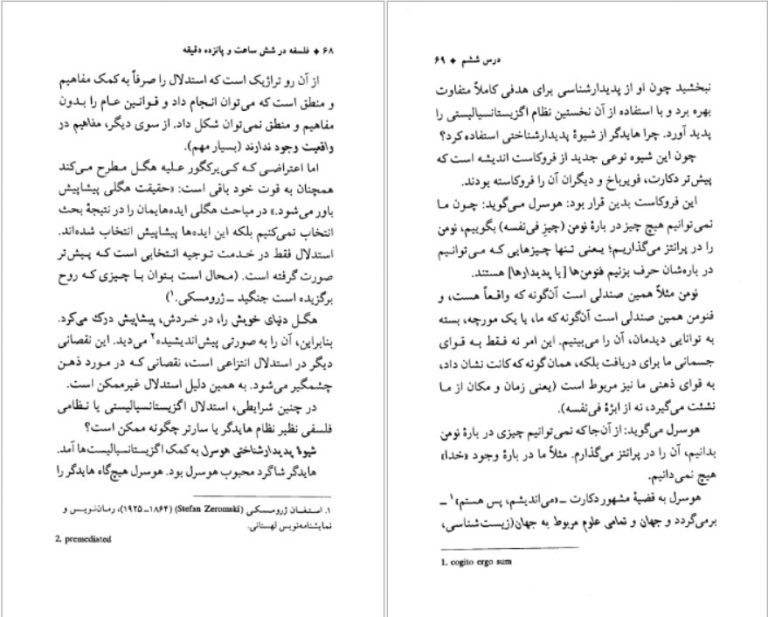 ۶۸ ♦ فلسفه در شش ساعت و پانزده دقیقه
از آن رو تراژیک است که استدلال را صرفاً به کمک مفاهیم
و منطق است که می‌توان انجام داد و قوانین عام را بدون
مفاهیم و منطق نمی‌توان شکل داد. از سوی دیگر، مفاهیم در
واقعیت وجود ندارند (بسیار مهم).
اما اعتراضی که کی‌یرکگور علیه هگل مطرح می‌کند
همچنان به قوت خود باقی است: «حقیقت هگلی پیشاپیش
باور می‌شود.» در مباحث هگلی ایده‌هایمان را در نتیجهٔ بحث
انتخاب نمی‌کنیم بلکه این ایده‌ها پیشاپیش انتخاب شده‌اند.
استدلال فقط در خدمت توجیه انتخابی است که پیش‌تر
صورت گرفته است. (محال است بتوان با چیزی که روح
برگزیده است جنگید ــ ژرومسکی.۱)
هگل دنیای خویش را، در خردش، پیشاپیش درک می‌کرد.
بنابراین، آن را به صورتی پیش‌اندیشیده۲ می‌دید. این نقصانی
دیگر در استدلال انتزاعی است، نقصانی که در مورد ذهن
چشمگیر می‌شود. به همین دلیل استدلال غیرممکن است.
در چنین شرایطی، استدلال اگزیستانسیالیستی یا نظامی
فلسفی نظیر نظام هایدگر یا سارتر چگونه ممکن است؟
شیوهٔ پدیدارشناختی هوسرل به کمک اگزیستانسیالیست‌ها آمد.
هایدگر شاگرد محبوب هوسرل بود. هوسرل هیچ‌گاه هایدگر را
۱. استفان ژرومسکی (Stefan Zeromski) (۱۸۶۴ــ۱۹۲۵)، رمان‌نویس و
نمایشنامه‌نویس لهستانی.
2. premediated
درس ششم ♦ ۶۹
نبخشید چون او از پدیدارشناسی برای هدفی کاملاً متفاوت
بهره برد و با استفاده از آن نخستین نظام اگزیستانسیالیستی را
پدید آورد. چرا هایدگر از شیوهٔ پدیدارشناختی استفاده کرد؟
چون این شیوه نوعی جدید از فروکاست اندیشه است که
پیش‌تر دکارت، فویرباخ و دیگران آن را فروکاسته بودند.
این فروکاست بدین قرار بود: هوسرل می‌گوید: چون ما
نمی‌توانیم هیچ چیز در بارهٔ نومن (چیزِ فی‌نفسه) بگوییم، نومن
را در پرانتز می‌گذاریم؛ یعنی تنها چیزهایی که می‌توانیم
در باره‌شان حرف بزنیم فنومن‌ها [یا پدیدارها] هستند.
نومن مثلاً همین صندلی است آن‌گونه که واقعاً هست، و
فنومن همین صندلی است آن‌گونه که ما، یا یک مورچه، بسته
به توانایی دیدمان، آن را می‌بینیم. این امر نه فقط به قوای
جسمانی ما برای دریافت بلکه، همان‌گونه که کانت نشان داد،
به قوای ذهنی ما نیز مربوط است (یعنی زمان و مکان از ما
نشئت می‌گیرد، نه از ابژهٔ فی‌نفسه).
هوسرل می‌گوید: از آن‌جا که نمی‌توانیم چیزی در بارهٔ نومن
بدانیم، آن را در پرانتز می‌گذارم. مثلاً ما در بارهٔ وجود «خدا»
هیچ نمی‌دانیم.
هوسرل به قضیهٔ مشهور دکارت ــ «می‌اندیشم، پس هستم»۱ ــ
برمی‌گردد و جهان و تمامی علوم مربوط به جهان(زیست‌شناسی،
1. cogito ergo sum